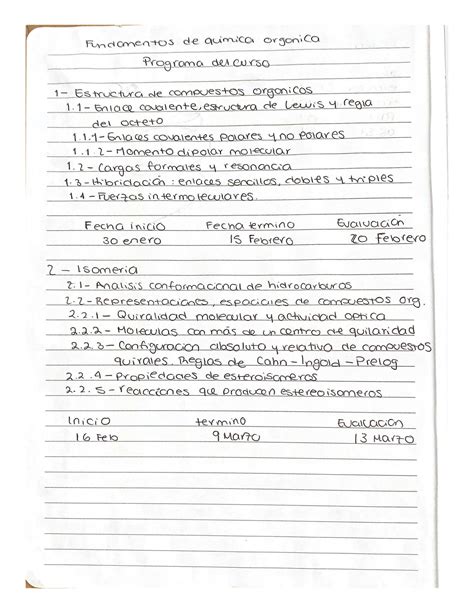 Fundamentos de quimica organica
Programa del curso
1- Estructura de compuestos organicos
1.1- Enlace covalente, estructura de Lewis y regla
del octeto
1.1.1- Enlaces covalentes polares y no polares
1.1.2- Momento dipolar molecular
1.2- Cargas formales y resonancia
1.3- Hibridación: enlaces sencillos, dobles y triples
1.4- Fuerzas intermoleculares.
Fecha inicio Fecha termino Evaluación
30 enero 15 Febrero 20 Febrero
2- Isomeria
2.1- Analisis conformacional de hidrocarburos
2.2- Representaciones, espaciales de compuestos org.
2.2.1- Quiralidad molecular y actividad optica
2.2.2- Moleculas con más de un centro de quilaridad
2.2.3- Configuracion absoluta y relativa de compuestos
quirales. Reglas de Cahn-Ingold-Prelog
2.2.4- Propiedades de esteroisomeros
2.2.5- reacciones que producen estereoisomeros
Inicio termino Evaluacion
16 Feb 9 Marzo 13 Marzo